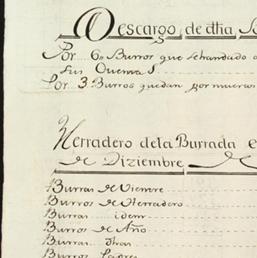 Descargo, de dha
Por 6 Burros que sehandado
sus Quentas
Por 3 Burros quedan por mueras
Herradero dela Burrada e
de Diziembre de
Burras de Vientre
Burros de Herradero
Burras idem
Burros de Año
Burras Ydras
Burros Padres